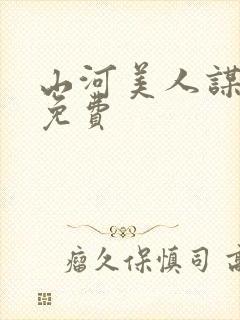 山河美人謀
免費
瘤久保慎司 高